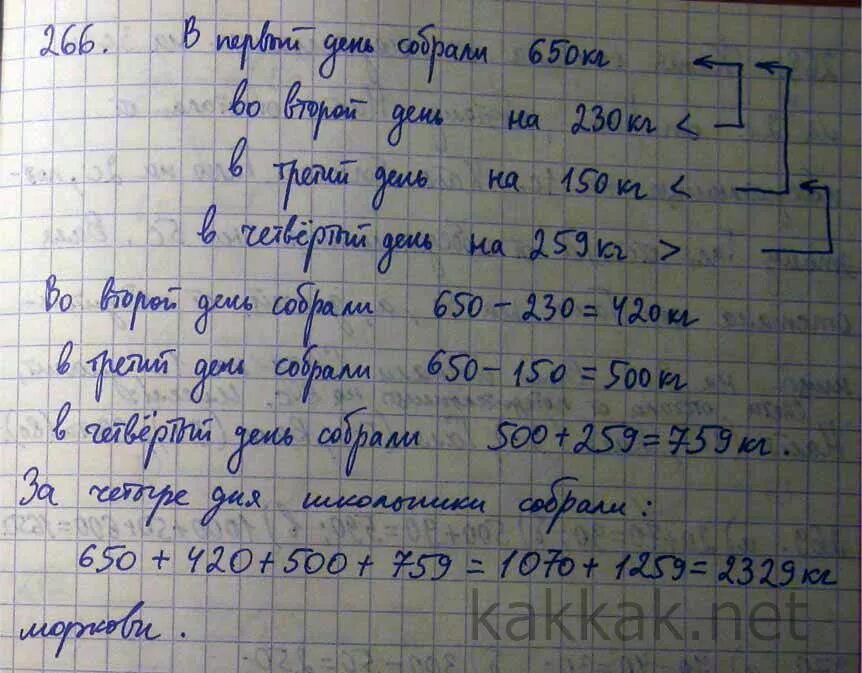 266. В первый день собрали 650 кг
во второй день на 230 кг <
в третий день на 150 кг <
в четвёртый день на 259 кг >
Во второй день собрали 650 - 230 = 420 кг
в третий день собрали 650 - 150 = 500 кг
в четвёртый день собрали 500 + 259 = 759 кг.
За четыре дня школьники собрали:
650 + 420 + 500 + 759 = 1070 + 1259 = 2329 кг
моркови.
kakkak.net